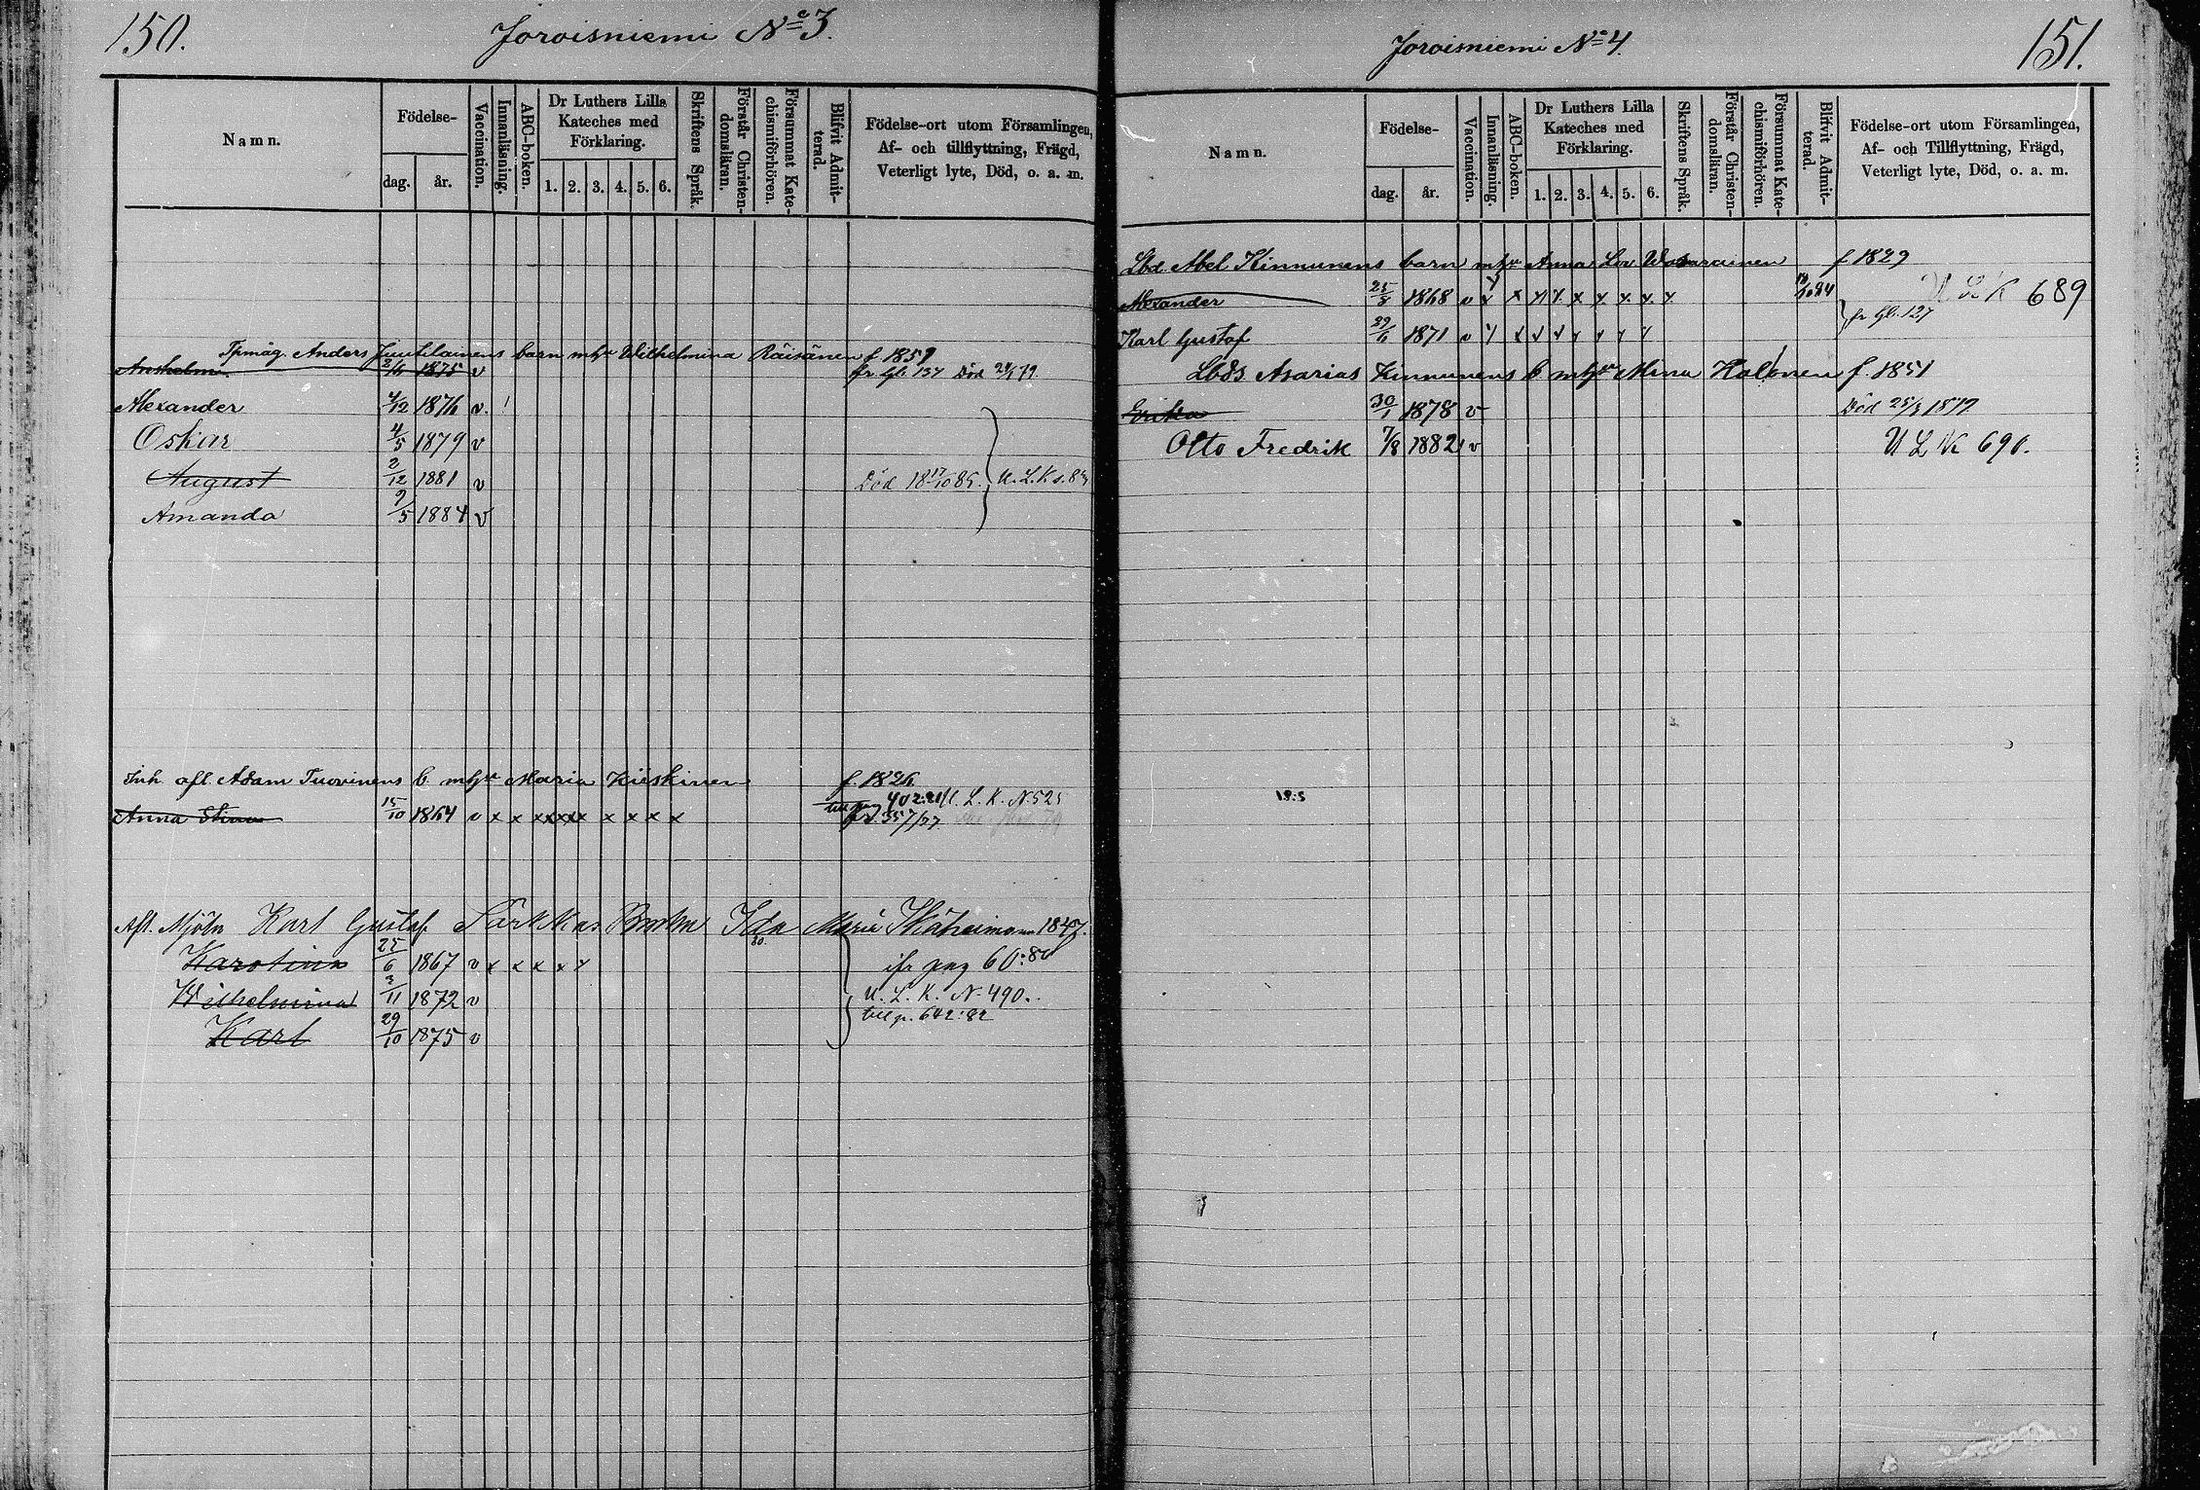 150.
Joroisniemi No 3.
Namn.
Födelse-
dag.
år.
Vaccination.
Innanläsning.
ABC-boken.
Dr Luthers Lilla
Kateches med
Förklaring.
1. 2. 3. 4. 5. 6.
Skriftens Språk.
Förstår Christen-
domsläran.
Försummat Kate-
chismiförhören.
Blifvit Admit-
terad.
Födelse-ort utom Församlingen,
Af- och tillflyttning, Frägd,
Veterligt lyte, Död, o. a. m.
Anders Juutilainens barn m Wilhelmina Räisänen f 1859
Anshelm 1875 v fr Gb. 157 Död
Alexander 4/12 1876 v.
Oskar 4/5 1879 v
August 2/12 1881 v Död 18 17/10 85. U.L.K.s.
Amanda 9/5 1884 v
Inh. afl. Adam Tuovinens b. m Maria Kieskinen f. 1826
U. L. K. N. 525
Anna Stina 15/10 1864 v x x x x x x x x x x fr. 357/77
Afl. Mjöln Karl Gustaf Ida Maria 1847.
Karolina 25/6 1867 v x x x x y ifr pag 60:80
Wilhelmina 3/11 1872 v U. L. K. N. 490.
till p. 642:82
Karl 29/10 1875 v
Joroisniemi No 4.
151.
Namn.
Födelse-
dag.
år.
Vaccination.
Innanläsning.
ABC-boken.
Dr Luthers Lilla
Kateches med
Förklaring.
1. 2. 3. 4. 5. 6.
Skriftens Språk.
Förstår Christen-
domsläran.
Försummat Kate-
chismiförhören.
Blifvit Admit-
terad.
Födelse-ort utom Församlingen,
Af- och Tillflyttning, Frägd,
Veterligt lyte, Död, o. a. m.
Lbd. Abel Kinnunens barn m Anna Lov f 1829
Alexander 25/8 1868 v U L K 689
fr Gb. 127
Karl Gustaf 29/6 1871 v
Lbds Asarias Kinnunens b m Mina Halonen f. 1851
Erika 30/1 1878 v Död 25/3 1879
Otto Fredrik 7/8 1882 v U L K 690.